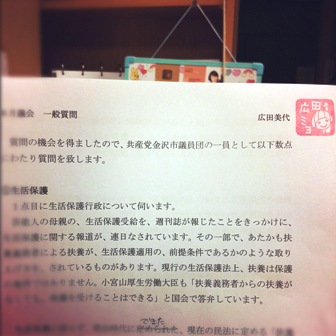 議会　一般質問
広田美代
広田
ミヨ
質問の機会を得ましたので、共産党金沢市議員団の一員として以下数点
にわたり質問を致します。
生活保護
１点目に生活保護行政について伺います。
母親の、生活保護受給を、週刊誌が報じたことをきっかけに、
保護に関する報道が、連日なされています。その一部で、あたかも扶
による扶養が、生活保護適用の、前提条件であるかのような取り
されているものがあります。現行の生活保護法上、扶養は保護
ではありません。小宮山厚生労働大臣も「扶養義務者からの扶養が
なくても、保護を受けることはできる」と国会で答弁しています。
できた
定められた、現在の民法に定める「扶養